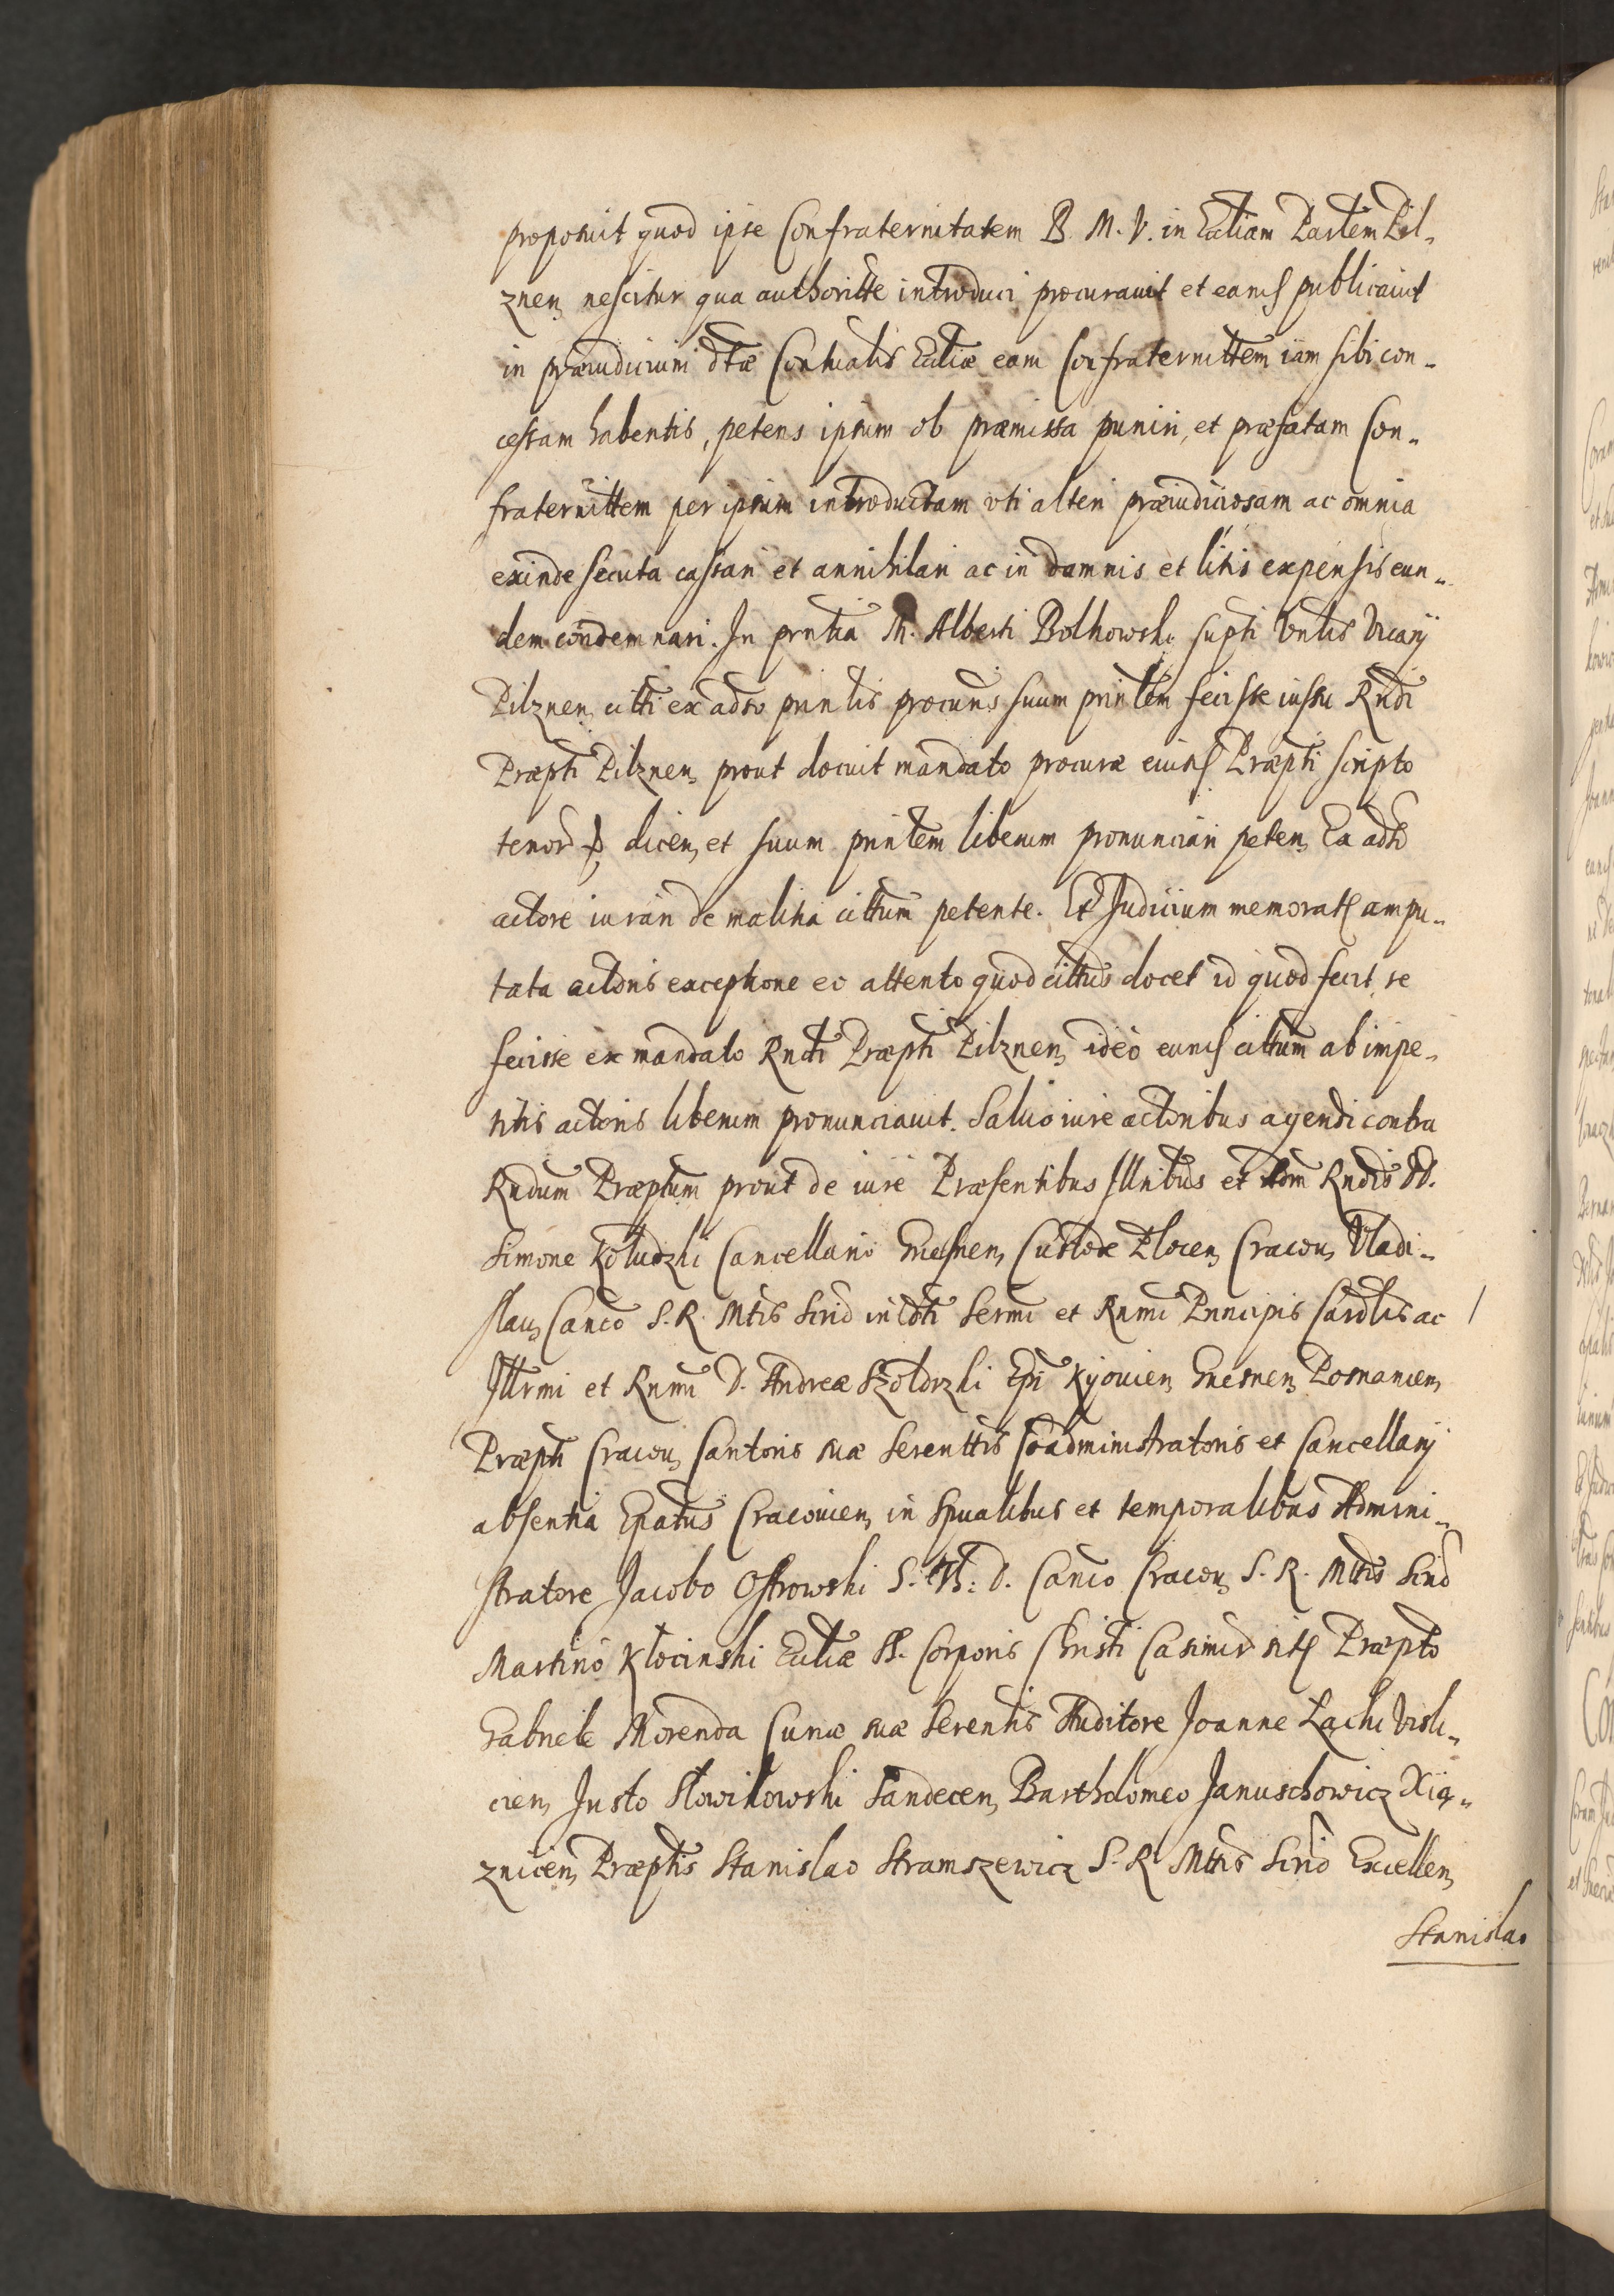 proposuit quod ipse Confraternitatem B. M. V. in Eccliam Parlem Pil-
znen, nescitur qua authoritte introduci procurauit et eand publicauit
in præiudicium dtæ Conualis Eccliæ eam Confraternittem iam sibi con-
cessam habentis, petens ipsum ob præmissa puniri, et præfatam Con-
fraternittem per ipsum introductam vti alteri præiudiciosam ac omnia
exinde secuta cassari et annihilari ac in damnis et litis expensis eun-
dem condemnari. In prntia M. Alberti Bolkowski supti Vicarij
Pilznen, citti ex aduo prinlis procuris suum prinlem fecisse iussu Rndi
Præpti Pilznen, prout docuit mandato procuræ eiusd Præpti scripto
tenoris dicen, et suum prinlem liberum pronunciari peten, Ex aduo
actore iuran de malitia cittum petente. Et Judicium memorat ampu-
tata actoris exceptione eo attento quod cittus docet id quod fecit se
fecisse ex mandato Rndi Præpti Pilznen, ideo eund cittum ab impe-
titis actoris liberum pronunciauit. Saluo iure actoribus agendi contra
Rndum Præptum prout de iure Præsentibus Illribus et Adm Rndis DD.
Simone Kołudzki Cancellario Gnesnen, Custode Plocen, Cracou, Vladi-
slau, Canco S. R. Mtis Secrio Sermi et Rnmi Principis Cardlis ac
Illrmi et Rnmi D. Andreæ Szołdrzki Epi Kyouien, Gnesnen, Posnanien,
Præpti Cracou, Cantoris suæ Serenttis Coadministratoris et Cancellarij
absentia Epatus Cracouien, in Spualibus et temporalibus Admini-
stratore Jacobo Ostrowski S. Th: D. Canco Cracou, S. R. Mttis Secrio
Martino Kłocinski Eccliæ SS. Corporis Christi Casimir sit Præpto
Gabriele Morenda Curiæ suæ Serenttis Auditore Joanne Lachi Visli-
cien, Justo Słowikowski Sandecen, Bartholomeo Januschowicz Xią-
znicen, Præptis Stanislao Stramszewicz S. R Mttis Secrio Excellen,
Stanislao